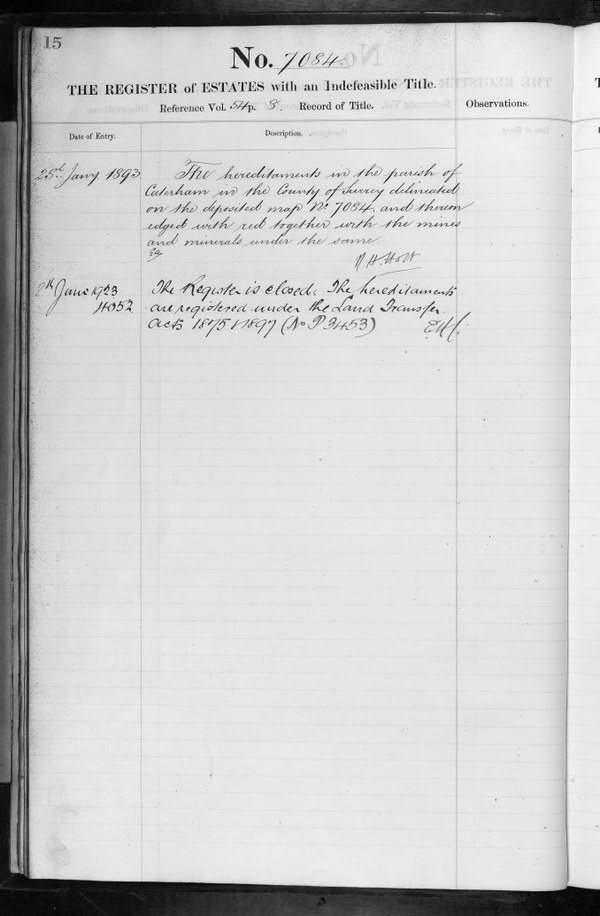 15
No. 7084
THE REGISTER of ESTATES with an Indefeasible Title.
Reference Vol. 54 p. 8. Record of Title.
Observations.
Date of Entry.
Description.
25th Jany 1893
The hereditaments in the parish of
Caterham in the County of Surrey delineated
on the deposited map No 7084 and thereon
edged with red together with the mines
and minerals under the same.
Holt
June 1923
4052
The Register is closed. The hereditaments
are registered under the Land Transfer
Acts 1875 & 1897 (No P 3453)